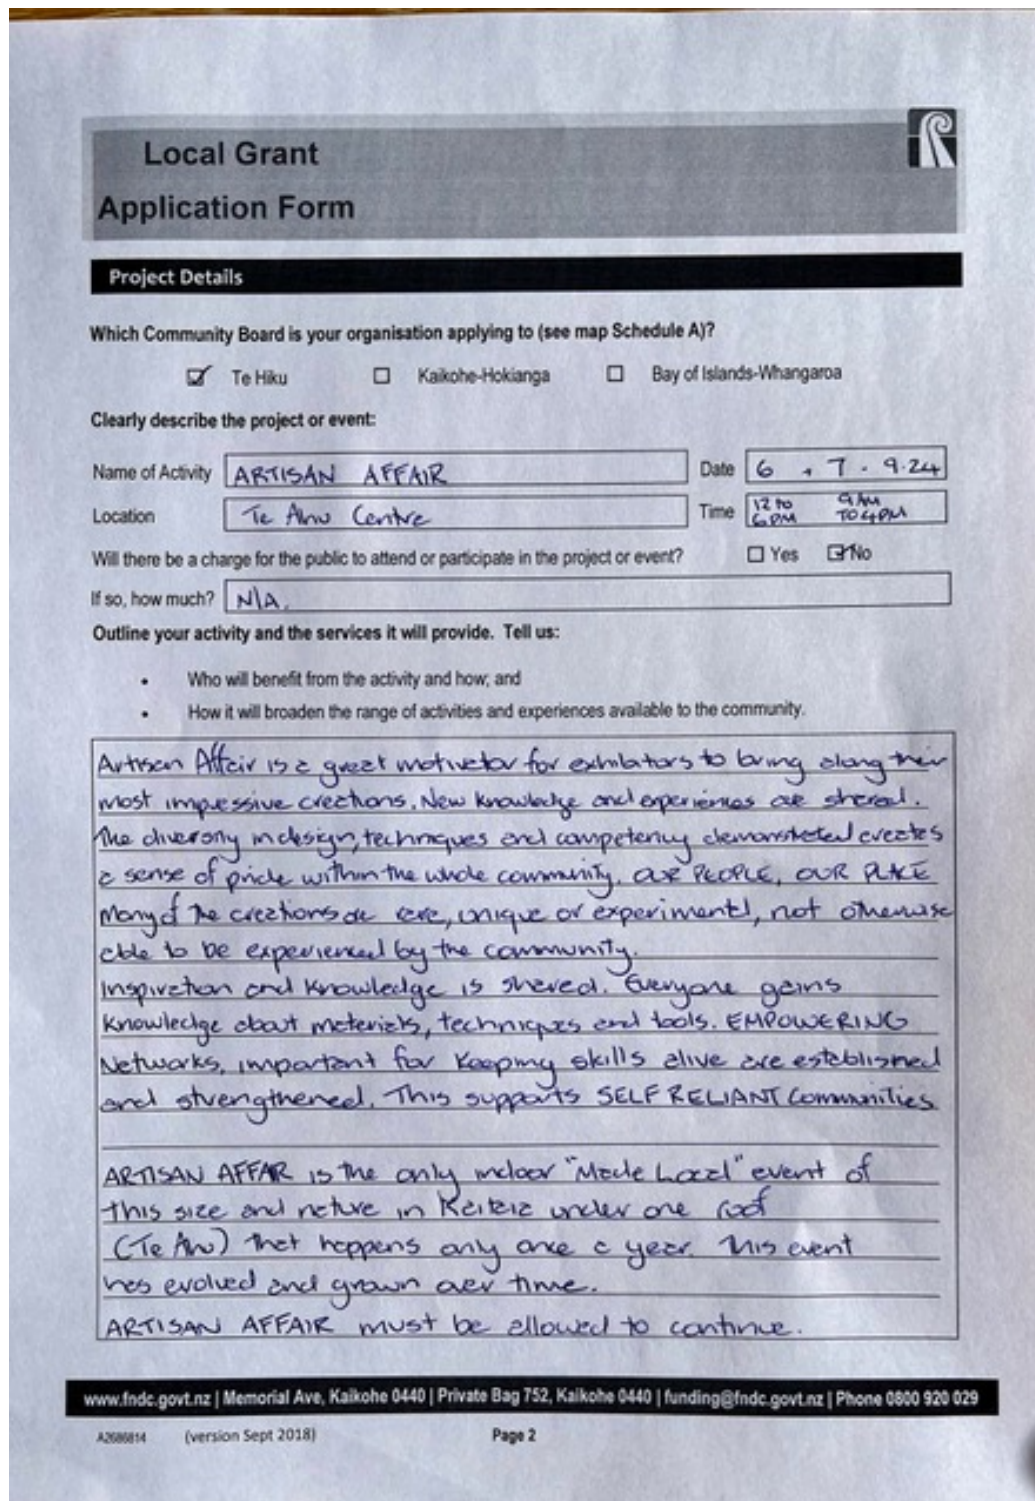 Local Grant
Application Form
Project Details
Which Community Board is your organisation applying to (see map Schedule A)?
☑ Te Hiku ☐ Kaikohe-Hokianga ☐ Bay of Islands-Whangaroa
Clearly describe the project or event:
Name of Activity ARTISAN AFFAIR Date 6 + 7 . 9.24
Location Te Ahu Centre Time 12 to 6PM 9AM TO 4PM
Will there be a charge for the public to attend or participate in the project or event? ☐ Yes ☑ No
If so, how much? N/A.
Outline your activity and the services it will provide. Tell us:
• Who will benefit from the activity and how; and
• How it will broaden the range of activities and experiences available to the community.
Artisan Affair is a great motivator for exhibitors to bring along their
most impressive creations. New knowledge and experiences are shared.
The diversity in design, techniques and competency demonstrated creates
a sense of pride within the whole community. OUR PEOPLE, OUR PLACE
Many of the creations are rare, unique or experimentl, not otherwise
able to be experienced by the community.
Inspiration and knowledge is shared. Everyone gains
knowledge about materials, techniques and tools. EMPOWERING
Networks, important for keeping skills alive are established
and strengthened. This supports SELF RELIANT Communities
ARTISAN AFFAR is the only indoor "Made Local" event of
this size and nature in Kaitaia under one roof
(Te Ahu) that happens only once a year. This event
has evolved and grown over time.
ARTISAN AFFAIR must be allowed to continue.
www.fndc.govt.nz | Memorial Ave, Kaikohe 0440 | Private Bag 752, Kaikohe 0440 | funding@fndc.govt.nz | Phone 0800 920 029
A2686814 (version Sept 2018) Page 2